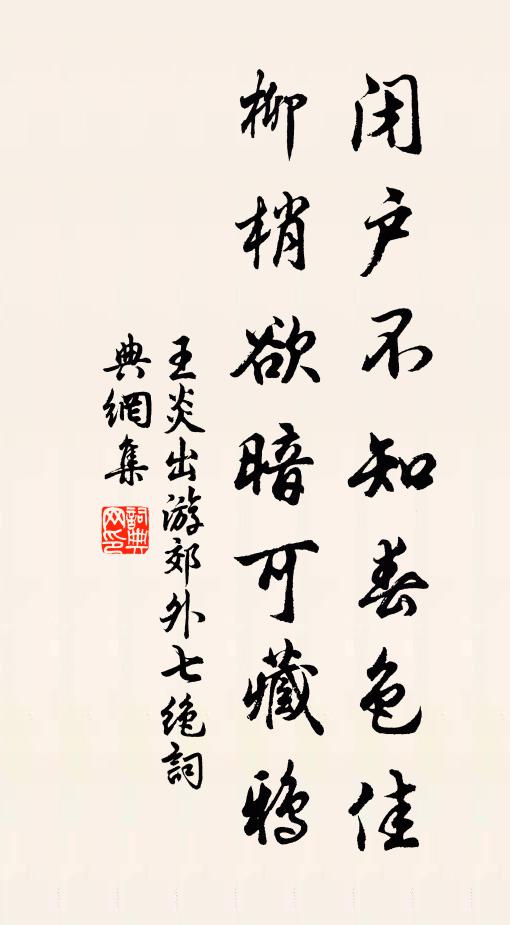 闭户不知春色佳
柳梢欲暗可藏鸦
王炎出游郊外七绝詞
典網集
詞典
网印